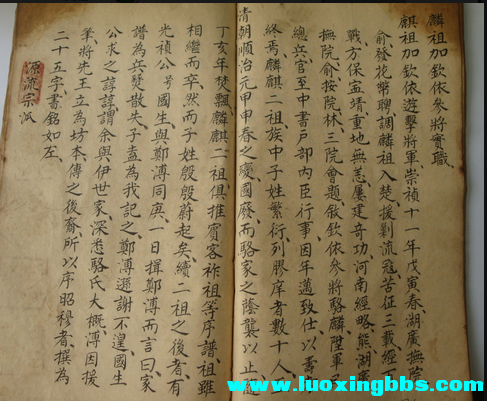 麟祖加欽依參將實職
麒祖加欽依遊擊將軍崇禎十一年戊寅春湖廣撫院
俞發花幣聘調麟麒入楚援剿流寇苦征三載經
戰方保孟靖重地無恙屢建奇功河南經略熊湖廣
撫院俞按院林三院會題敘欽依參將駱麟陞軍
總兵官至中書戶部內臣行事因年邁致仕以壽
終焉麟麒二祖族中子姓繁衍列膠庠者數十人
清朝順治元甲申春之慶國廢而駱家之蔭襲以止
丁亥年焚飄麟麒二祖俱推賓客祚祖等序譜祖雖
相繼而卒然而子姓殷殷蔚起矣續二祖之後者有
光禎公号國生與鄭溥同庚一日揖鄭溥而言曰家
譜為兵燹散失子盍為我記之鄭溥遜謝不遑國生
公求之諄諄謂余與伊世家深悉駱氏大概溥因援
筆將先王立為坊本傳之後裔所以序昭穆者撰為
二十五字書銘如左
源流宗派
www.luoxingbbs.com